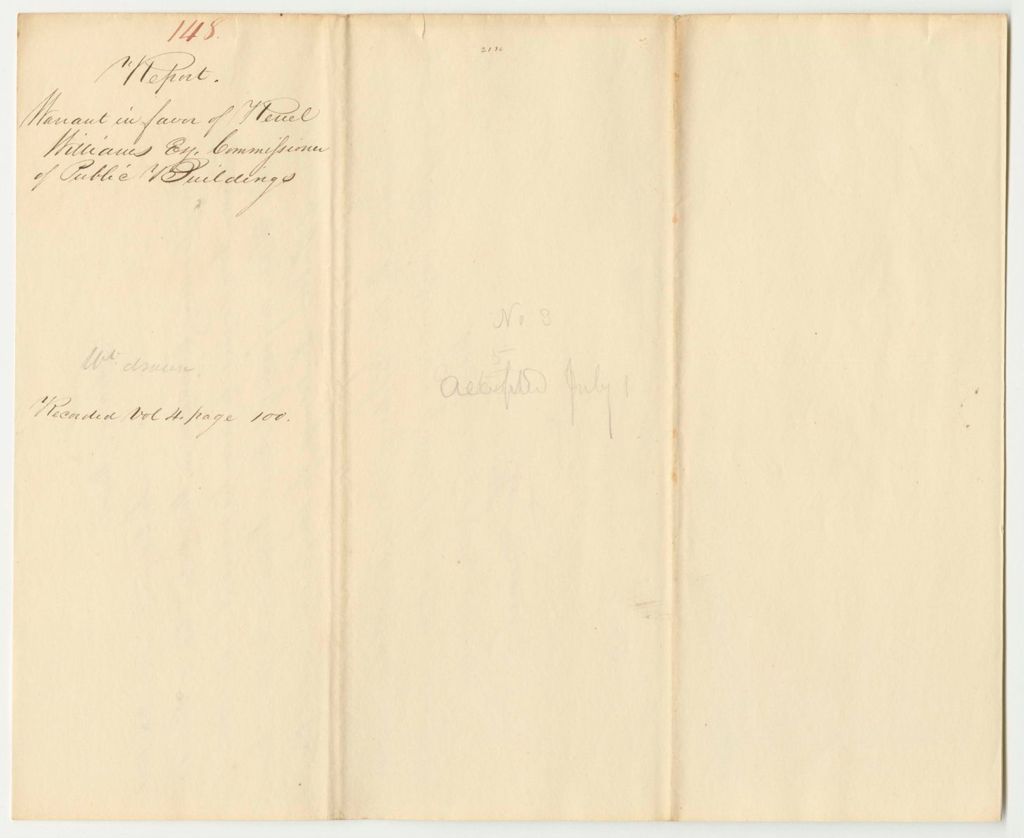 148.
Report.
Warrant in favor of Reuel
Williams Esq. Commissioner
of Public Buildings
Wt. drawn
Recorded Vol 4. page 100.
No 3
5
accepted July 1